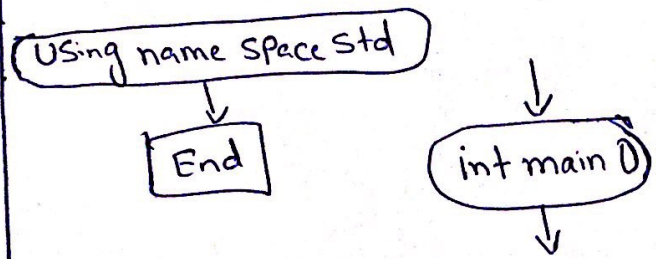 Using name space Std
End
int main ()